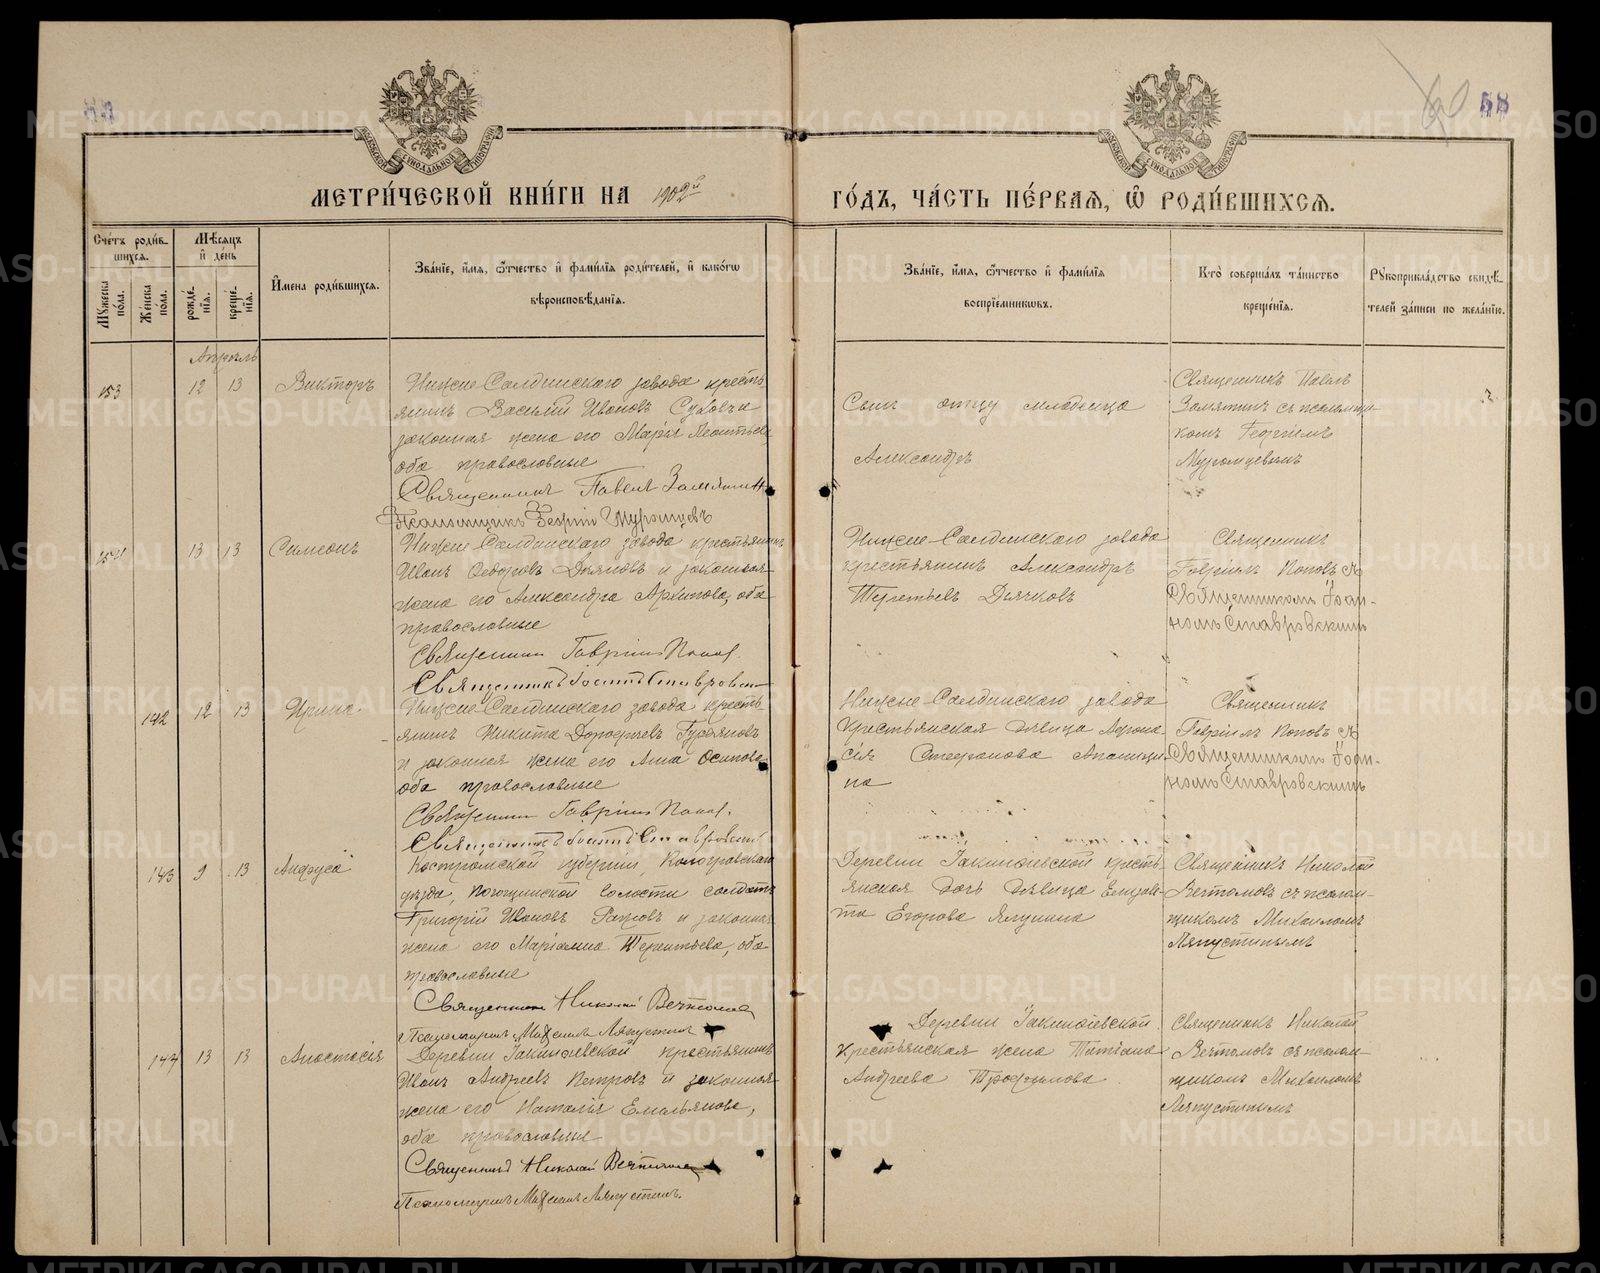 58
60
МЕТРИ́ЧЕСКОЙ КНИ́ГИ НА 1902й
ГО́ДЪ, ЧА́СТЬ ПЕ́РВАѦ, Ѽ РОДИ́ВШИХСѦ.
Сче́тъ роди́в-
шихся.
Мѣ́сяцъ
и҆ де́нь
Му́жеска по́ла.
Же́нска по́ла.
рожде́-
нїя.
креще́-
нїя.
И҆́мена роди́вшихся.
Зва́нїе, и҆́мя, ѻ҆́тчество и҆ фами́лїя роди́телей, и҆ како́гѡ
вѣроисповѣ́данїя.
Зва́нїе, и҆́мя, ѻ҆́тчество и҆ фами́лїя
воспрїе́мникѡвъ.
Кто̀ соверша́лъ та́инство
креще́нїя.
Рꙋкоприкла́дство свидѣ́-
телей за́писи по жела́нїю.
Апрѣль
153
12
13
Викторъ
Нижне-Салдинскаго завода кресть
янинъ Василій Ивановъ Суховъ и
законная жена его Марія Леонтьева
оба православные
Священникъ Павелъ Замятинъ
Псаломщикъ Георгій Муромцевъ
Сынъ отцу младенца
Александръ
Священникъ Павелъ
Замятинъ съ псаломщи-
комъ Георгіемъ
Муромцевымъ
154
13
13
Симеонъ
Нижне-Салдинскаго завода крестьянинъ
Иванъ Ѳедоровъ и законная
жена его Александра Архипова, оба
православные
Священникъ Гавріилъ Поповъ.
Священникъ Іоаннъ Ставровскій
Нижне-Салдинскаго завода
крестьянинъ Александръ
Терентьевъ Дьячковъ
Священникъ
Гавріилъ Поповъ съ
Священникомъ Іоан-
номъ Ставровскимъ
142
12
13
Ирина
Нижне-Салдинскаго завода кресть-
янинъ Никита Дороѳеевъ
и законная жена его Анна Осипова
оба православные
Священникъ Гавріилъ Поповъ.
Священникъ Іоаннъ Ставровскій
Нижне-Салдинскаго завода
Крестьянская дѣвица Аѳона-
сія Стефанова
на
Священникъ
Гавріилъ Поповъ съ
Священникомъ Іоан-
номъ Ставровскимъ
143
9
13
Анфуса
Костромской губерніи, Кологривскаго
уѣзда, волости солдатъ
Григорій Ивановъ и законная
жена его Маріамна Терентьева, оба
православные
Священникъ Николай Вечтомовъ
Псаломщикъ Михаилъ Ляпустинъ
Деревни Іакинѳіевской кресть-
янская дочь дѣвица Елизаве-
та Егорова Ялунина
Священникъ Николай
Вечтомовъ съ псалом-
щикомъ Михаиломъ
Ляпустинымъ
144
13
13
Анастасія
Деревни Іакинѳіевской крестьянинъ
Иванъ Андреевъ Петровъ и законная
жена его Наталія Емельянова,
оба православные
Священникъ Николай Вечтомовъ
Псаломщикъ Михаилъ Ляпустинъ.
Деревни Іакинѳіевской
крестьянская жена Татіана
Андреева Трофимова
Священникъ Николай
Вечтомовъ съ псалом-
щикомъ Михаиломъ
Ляпустинымъ
METRIKI.GASO-URAL.RU